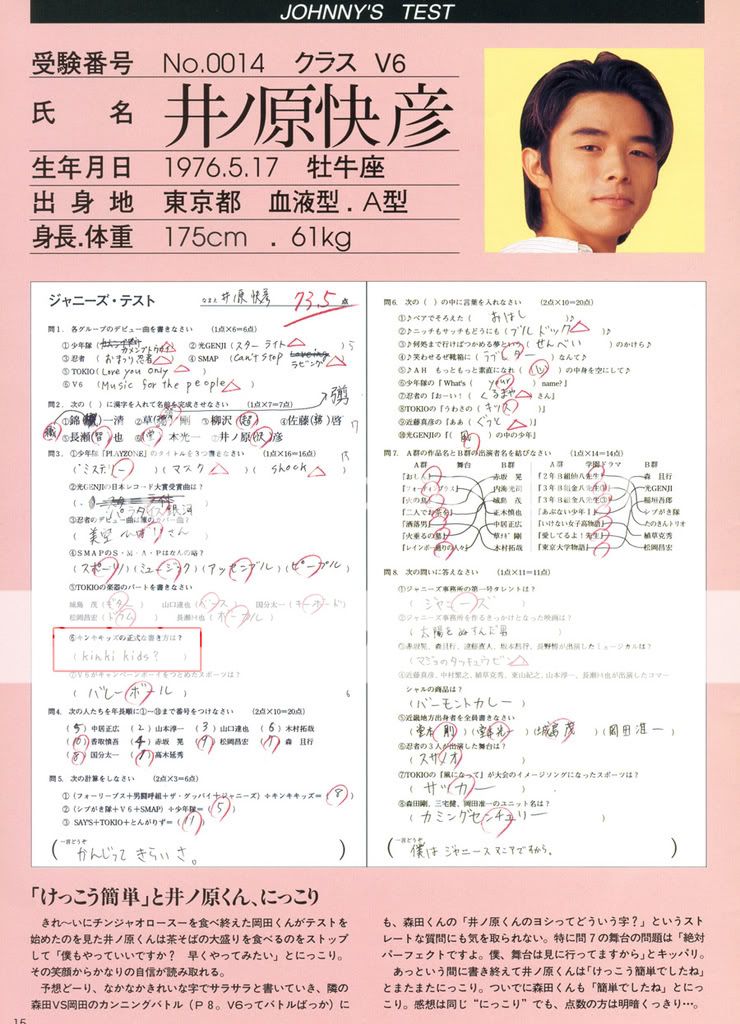 JOHNNY'S TEST
受験番号 No.0014 クラス V6
氏名 井ノ原快彦
生年月日 1976.5.17 牡牛座
出身地 東京都 血液型.A型
身長.体重 175cm . 61kg
ジャニーズ・テスト なまえ 井ノ原快彦 73.5 点
問1．各グループのデビュー曲を書きなさい (1点×6=6点)
①少年隊( ) ②光GENJI(スターライト)
③忍者(おまつり忍者) ④SMAP(Can't Stop ラビング)
⑤TOKIO(Love you only)
⑥V6(Music for the people)
問2．次の( )に漢字を入れて名前を完成させなさい (1点×7=7点)
①錦( )一清 ②草( )剛 ③柳沢(超) ④佐藤( )啓
⑤長瀬(智)也 ⑥(堂)本光一 ⑦井ノ原(快)彦
問3．①少年隊『PLAYZONE』のタイトルを3つ書きなさい (1点×16=16点)
(ミステリー) (マスク) (shock)
②光GENJIの日本レコード大賞受賞曲は？
(パラダイス銀河)
③忍者のデビュー曲は誰のカバー曲？
(美空ひばりさん)
④SMAPのS・M・A・Pはなんの略？
(スポーツ)(ミュージック)(アッセンブル)(ピープル)
⑤TOKIOの楽器のパートを書きなさい
城島 茂(ギター) 山口達也(ベース) 国分太一(キーボード)
松岡昌宏(ドラム) 長瀬智也(ボーカル)
⑥キンキキッズの正式な書き方は？
(kinki kids?)
⑦V6がキャンペーンボーイをつとめたスポーツは？
(バレーボール)
問4．次の人たちを年長順に①〜⑩まで番号をつけなさい (2点×10=20点)
(5)中居正広 (2)山本淳一 (3)山口達也 (6)木村拓哉
(10)香取慎吾 (4)赤坂 晃 (9)松岡昌宏 (7)森 且行
(8)国分太一 ( )高木延秀
問5．次の計算をしなさい (2点×3=6点)
①(フォーリーブス+男闘呼組+ザ・グッバイ+ジャニーズ)÷キンキキッズ=(8)
②(シブがき隊+V6+SMAP)÷少年隊=(5)
③SAY'S+TOKIO+とんがりずー=(11)
一言どうぞ
(かんじってきらいさ。)
問6．次の( )の中に言葉を入れなさい (2点×10=20点)
①♪ペアでそろえた(おはし)♪
②♪ニッチもサッチもどうにも(ブルドック)
③♪何処まで行けばつかめる夢という(せんべい)のかけら♪
④♪笑わせるぜ靴箱に(ラブレター)なんて♪
⑤♪AH もっともっと素直になれ( )の中身を空にして♪
⑥少年隊の『What's (your) name?』
⑦忍者の『おーい！(くるまや)さん』
⑧TOKIOの『うわさの(キッス)』
⑨近藤真彦の『ああ(ぐっと)』
⑩光GENJIの『( )の中の少年』
問7．A群の作品名とB群の出演者名を結びなさい (1点×14=14点)
A群 舞台 B群 A群 学園ドラマ B群
『おしん』 赤坂 晃 『2年B組仙八先生』 森 且行
内海光司 光GENJI
『火の鳥』 城島 茂 稲垣吾郎
『二人でお茶を』 正木慎也 『あぶない少年』 シブがき隊
『洒落男』 中居正広 『いけない女子高物語』 たのきんトリオ
『火垂るの墓』 草彅 剛 『愛してるよ！先生』 植草克秀
『レインボー通りの人々』 木村拓哉 『東京大学物語』 松岡昌宏
問8．次の問いに答えなさい (1点×11=11点)
①ジャニーズ事務所の第一号タレントは？
(ジャニーズ)
②ジャニーズ事務所を作るきっかけとなった映画は？
(太陽をぬすんだ男)
③赤坂晃、森且行、遠藤直人、坂本昌行、長野博が出演したミュージカルは？
(マジョのタッキュウビン)
④近藤真彦、中村繁之、植草克秀、東山紀之、山本淳一、長瀬智也が出演したコマー
シャルの商品は？
(バーモントカレー)
⑤近畿地方出身者を全員書きなさい
(堂本剛)(堂本光一)(城島茂)(岡田准一)
⑥忍者の3人が出演した舞台は？
(スサノオ)
⑦TOKIOの『風になって』が大会のイメージソングになったスポーツは？
(サッカー)
⑧森田剛、三宅健、岡田准一のユニット名は？
(カミングセンチュリー)
一言どうぞ
(僕はジャニーズマニアですから。)
「けっこう簡単」と井ノ原くん、にっこり
きれ〜いにチンジャオロースーを食べ終えた岡田くんがテストを
始めたのを見た井ノ原くんは茶そばの大盛りを食べるのをストップ
して「僕もやっていいですか？ 早くやってみたい」とにっこり。
その笑顔からかなりの自信が読み取れる。
予想どーり、なかなかきれいな字でサラサラと書いていき、隣の
森田VS岡田のカンニングバトル（P8。V6ってバトルばっか）に
も、森田くんの「井ノ原くんのヨシってどういう字？」というスト
レートな質問にも気を取られない。特に問7の舞台の問題は「絶対
パーフェクトですよ。僕、舞台は見に行ってますから」とキッパリ。
あっという間に書き終えて井ノ原くんは「けっこう簡単でしたね」
とまたまたにっこり。ついでに森田くんも「簡単でしたね」とにっ
こり。感想は同じ“にっこり”でも、点数の方は明暗くっきり…。
15